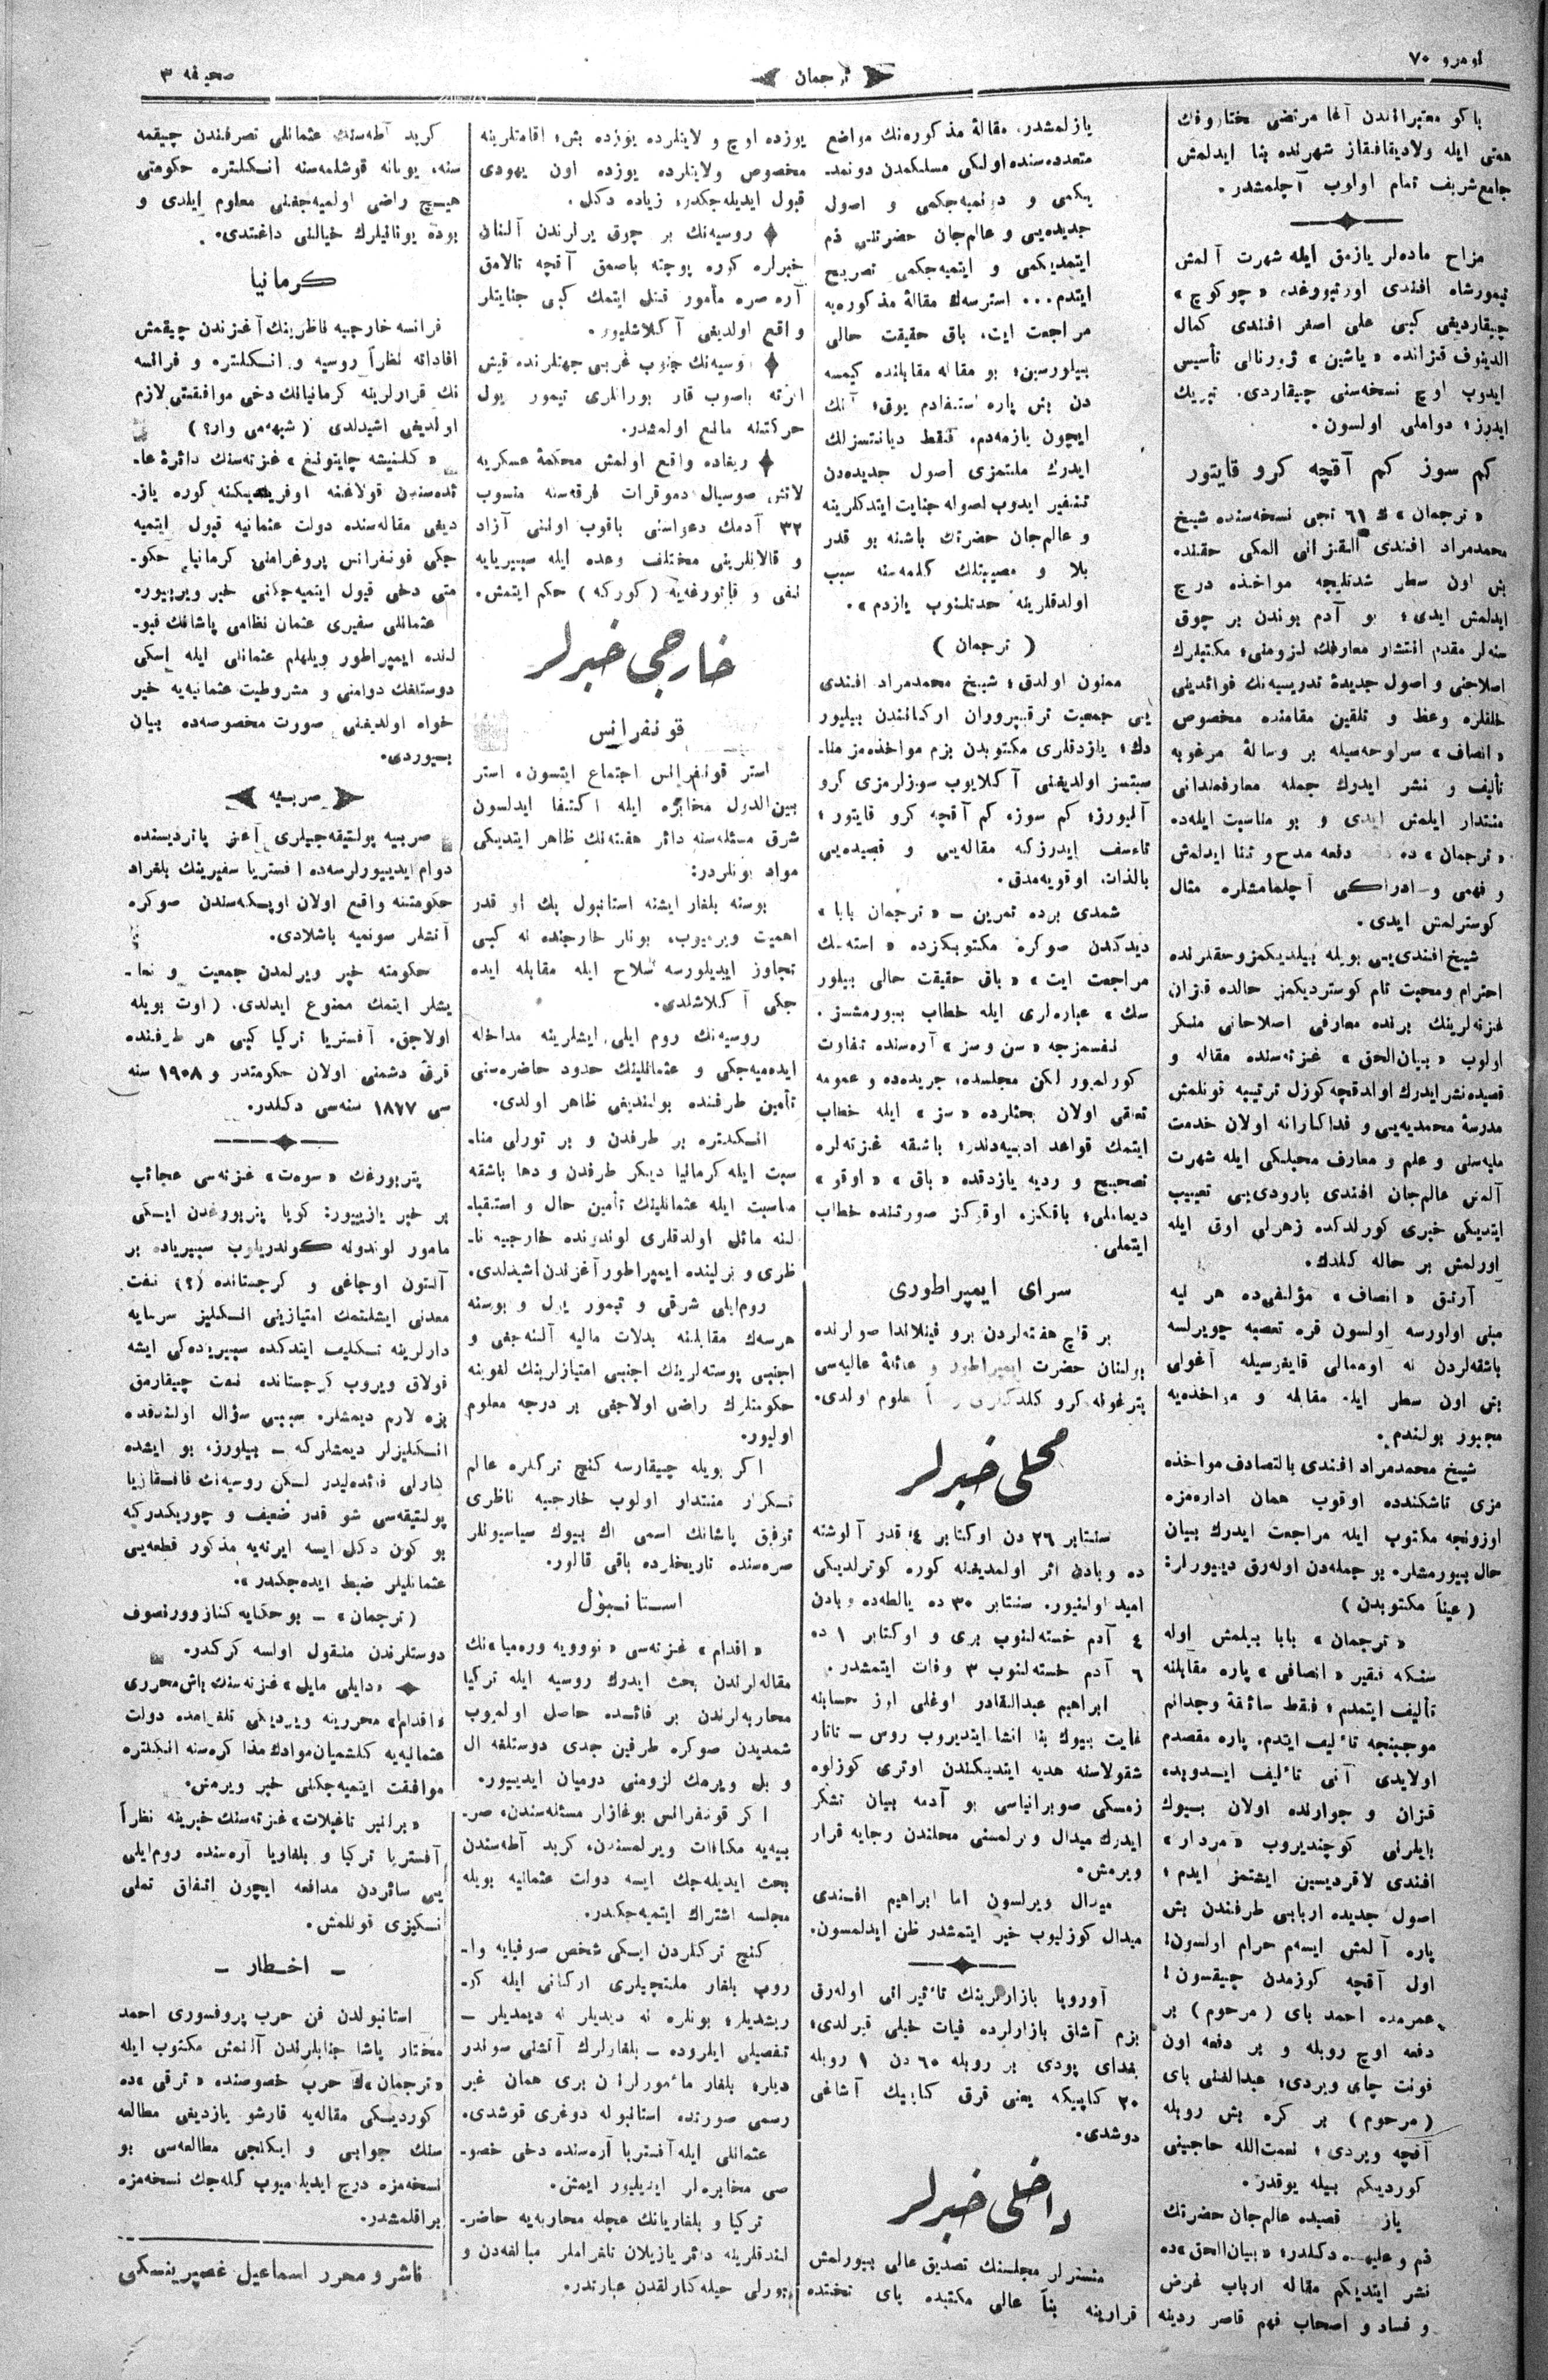 نومرو ٧٠
ترجمان
صحیفه ٣
باکو معتبرانندن آغا مرتضی مختاروفك
همتی ایله ولادیقافقاز شهرنده بنا ایدلمش
جامع شریف تمام اولوب آچلمشدر.
مزاح ماده‌لر یازمق ایله شهرت آلمش
تیمورشاه افندی اورنبورغده «چوکوچ»
چیقاردیغی کبی علی اصغر افندی کمال
الدینوف قزانده «یاشین» ژورنالی تأسیس
ایدوب اوچ نسخه‌سنی چیقاردی. تبریك
ایدرز؛ دواملی اولسون.
کم سوز کم آقچه کرو قایتور
«ترجمان» ك ٦١ نجی نسخه‌سنده شیخ
محمدمراد افندی القزانی المکی حقنده
بش اون سطر شدتلیجه مواخذه درج
ایدلمش ایدی؛ بو آدم بوندن بر چوق
سنه‌لر مقدم انتشار معارفك لزومنی؛ مکتبلرك
اصلاحنی و اصول جدیدهٔ تدریسیه‌نك فوائدینی
خلقلره وعظ و تلقین مقامنده مخصوص
«انصاف» سراوحه‌سیله بر رسالهٔ مرغوبه
تألیف و نشر ایدرك جمله معارفمندانی
منتدار ایلمش ایدی و بو مناسبت ایله‌ده
«ترجمان» ده دفعه مدح و ثنا ایدلمش
و فهمی و ادراکی آچلمامشلره مثال
کوسترلمش ایدی.
شیخ افندی‌یی بویله بیلدیکمز و حقلرنده
احترام و محبت تام کوستردیکمز حالده قزان
غزته‌لرینك برنده معارفی اصلاحانی منکر
اولوب «بیان‌الحق» غزته‌سنده مقاله و
قصیده نشر ایدرك اولدقچه کوزل ترتیبیه قونلمش
مدرسهٔ محمدیه‌یی و فداکارانه اولان خدمت
ملیه‌سنی و علم و معارف محبلیکی ایله شهرت
آلمش عالم‌جان افندی بارودی‌یی تعییب
ایتدیکی خبری کورلدکده زهرلی اوق ایله
اورلمش بر حاله کلدك.
آرتق «انصاف» مؤلفی‌ده هر نیه
مبنی اولورسه اولسون قره تعصبه چویرلسه
باشقه‌لردن نه اوممالی قایغرسیله آغولی
بش اون سطر ایله مقاله و مواخذه‌یه
مجبور بولندم.
شیخ محمدمراد افندی بالتصادف مواخذه
مزی تاشکندده اوقوب همان اداره‌مزه
اوزونجه مکتوب ایله مراجعت ایدرك بیان
حال بیورمشلر. بو جمله‌دن اوله‌رق دیییورلر:
(عیناً مکتوبدن)
«ترجمان» بابا بیلمش اوله
سنکه فقیر «انصافی» پاره مقابلنه
تألیف ایتمدم؛ فقط سائقهٔ وجدانم
موجبنجه تألیف ایتدم. پاره مقصدم
اولایدی آنی تألیف ایسدوبده
قزان و جوارنده اولان بیوك
بایلرنی کوچندیروب «مردار»
افندی لاقردیسین ایشتمز ایدم؛
اصول جدیده اربابی طرفندن بش
پاره آلمش ایسەم حرام اولسون!
اول آقچه کوزمدن چیقسون!
عمرمده احمد بای (مرحوم) بر
دفعه اوچ روبله و بر دفعه اون
فونت چای ویردی؛ عبدالغنی بای
(مرحوم) بر کره بش روبله
آقچه ویردی؛ نعمت‌الله حاجینی
کوردیکم بیله یوقدر.
قصیده عالم‌جان حضرتك
ذم و علیهنه دکلدر؛ «بیان‌الحق» ده
نشر ایتدیکم مقاله ارباب غرض
و فساد و اصحاب فهم قاصر ردینه
یازلمشدر. مقالهٔ مذکوره‌نك مواضع
متعدده‌سنده اولکی مسلکمدن دونمد-
یکمی و دونمیه‌جکمی و اصول
جدیده‌یی و عالم‌جان حضرتنی ذم
ایتمدیکمی و ایتمیه‌جکمی تصریح
ایتدم... استرسەك مقالهٔ مذکوره‌یه
مراجعت ایت، باق حقیقت حالی
بیلورسین؛ بو مقاله مقابلنده کیمسه
دن بش پاره استفادم یوق؛ آنك
ایچون یازمەدم. فقط دیانتسزلك
ایدرك ملتمزی أصول جدیده‌دن
تنفیر ایدوب اصوله جنایت ایتدکلرینه
و عالم‌جان حضرتك باشنه بو قدر
بلا و مصیبتلك کلمه‌سنه سبب
اولدقلرینه حدتلنوب یازدم».
(ترجمان)
ممنون اولدق؛ شیخ محمدمراد افندی
یی جمعیت ترقیپروران ارکانندن بیلیور
دك؛ یازدقلری مکتوبدن بزم مواخذه‌مز منا-
سبتسز اولدیغنی آکلایوب سوزلرمزی کرو
آلیورز؛ کم سوز کم آقچه کرو قایتور؛
تأسف ایدرزکه مقاله‌یی و قصیده‌یی
بالذات اوقویه‌مدق.
شمدی برده تمرین — «ترجمان بابا»
دیدکدن صوکره مکتوبکزده «استه‌سك
مراجعت ایت» «باق حقیقت حالی بیلور
سك» عباره‌لری ایله خطاب بیورمشسز.
نفسمزجه «سن و سز» آره‌سنده تفاوت
کورلمیور لکن مجلسده، جریده‌ده و عمومه
تعلقی اولان بحثلرده «سز» ایله خطاب
ایتمك قواعد ادبیه‌دندر؛ باشقه غزته‌لره
تصحیح و ردیه یازدقده «باق» «اوقو»
دیمامالی؛ باقکز، اوقوکز صورتنده خطاب
ایتملی.
سرای ایمپراطوری
بر قاچ هفته‌لردن برو فینلاندا صولرنده
بولنان حضرت ایمپراطور و عائلهٔ عالیه‌سی
پترغوفه کرو کلدکلری معلوم اولدی.
محلی خبرلر
سنتابر ٢٦ دن اوکتابر ٤ قدر آلوشته
ده وبادن اثر اولمدیغنه کوره کوترلدیکی
امید اولنیور. سنتابر ٣٠ ده یالطه‌ده وبادن
٤ آدم خسته‌لنوب بری و اوکتابر ١ ده
٦ آدم خسته‌لنوب ٣ وفات ایتمشدر.
ابراهیم عبدالقادر اوغلی اوز حسابنه
غایت بیوك بنا انشا ایتدیروب روس — تاتار
شقولاسنه هدیه ایتدیکندن اوتری کوزلوه
زمسکی صوبرانیاسی بو آدمه بیان تشکر
ایدرك میدال ویرلمسنی محلندن رجایه قرار
ویرمش.
میدال ویرلسون اما ابراهیم افندی
میدال کوزلیوب خیر ایتمشدر ظن ایدلمسون.
آوروپا بازارلرینك تأثیراتی اوله‌رق
بزم آشلق بازارلرده فیات خیلی قیرلدی؛
بغدای پودی بر روبله ٦٥ دن ١ روبله
٢٠ کاپیکه یعنی قرق کاپیك آشاغی
دوشدی.
داخلی خبرلر
منسترلر مجلسنك تصدیق عالی بیورلمش
قرارینه بناً عالی مکتبده پای تختده
یوزده اوچ و لاینلرده یوزده بش؛ اقامتلرینه
مخصوص ولاینلرده یوزده اون یهودی
قبول ایدیله‌جکدر؛ زیاده دکل.
روسیه‌نك بر چوق یرلرندن آلنان
خبرلره کوره پوچته باصمق آقچه تالامق
آره صره مأمور قتل ایتمك کبی جنایتلر
واقع اولدیغی آکلاشلیور.
روسیه‌نك جنوب غربی جهتلرنده قیش
ارته باصوب قار بورانلری تیمور یول
حرکتنه مانع اولمشدر.
ریغاده واقع اولمش محکمهٔ عسکریه
لاتش صوسیال دموقرات فرقه‌سنه منسوب
٣٢ آدمك دعواسنی باقوب اولنی آزاد
و قالانلرینی مختلف وعده ایله سیبیریایه
نفی و قاتورغه‌یه (کورکه) حکم ایتمش.
خارجی خبرلر
قونفرانس
استر قونفرانس اجتماع ایتسون، استر
بین‌الدول مخابره ایله اکتفا ایدلسون
شرق مسئله‌سنه دائر هفته‌نك ظاهر ایتدیکی
مواد بونلردر:
بوسنه بلغار ایشنه استانبول پك او قدر
اهمیت ویرمیوب، بونلر خارجنده نه کبی
تجاوز ایدیلورسه سلاح ایله مقابله ایده
جکی آکلاشلدی.
روسیه‌نك روم ایلی ایشلرینه مداخله
ایده‌میه‌جکی و عثمانلینك حدود حاضره‌سنی
تأمین طرفنده بولندیغی ظاهر اولدی.
انکلتره بر طرفدن و بر تورلی منا-
سبت ایله کرمانیا دیکر طرفدن و دها باشقه
مناسبت ایله عثمانلینك تأمین حال و استقبا-
لنه مائل اولدقلری لوندرنده خارجیه نا-
ظری و برلینده ایمپراطور آغزندن اشیدلدی.
روم‌ایلی شرقی و تیمور یول و بوسنه
هرسەك مقابلنه بدلات مالیه آلنه‌جغی و
اجنبی پوسته‌لرینك اجنبی امتیازلرینك لغوینه
حکومتلرك راضی اولاجغی بر درجه معلوم
اولیور.
اکر بویله چیقارسه کنج ترکلره عالم
تکرار منتدار اولوب خارجیه ناظری
توفیق پاشانك اسمی اك بیوك سیاسیونلر
صره‌سنده تاریخلرده باقی قالور.
استانبول
«اقدام» غزته‌سی «نوویه وره‌میا»نك
مقاله‌لرندن بحث ایدرك روسیه ایله ترکیا
محاربه‌لرندن بر فائده حاصل اولمیوب
شمدیدن صوکره طرفین جدی دوستلغه ال
و بل ویرمك لزومنی درمیان ایدییور.
اکر قونفرانس بوغازلر مسئله‌سندن، صر-
بیه‌یه مکافات ویرلمسندن، کرید آطه‌سندن
بحث ایدیله‌جك ایسه دولت عثمانیه بویله
مجلسه اشتراك ایتمیه‌جکدر.
کنج ترکلردن ایکی شخص صوفیایه وا-
روب بلغار ملتچیلری ارکانی ایله کو-
ریشدیلر؛ بونلره نه دیدیلر نه دیمدیلر —
تفصیلی ایلروده — بلغارلرك آتشنی سوندر
دیلر؛ بلغار مأمورلرندن بری همان غیر
رسمی صورتده استانبوله دوغری قوشدی.
عثمانلی ایله آفستریا آره‌سنده دخی خصو-
صی مخابره‌لر ایدیلیور ایمش.
ترکیا و بلغاریانك عجله محاربه‌یه حاضر-
لندقلرینه دائر یازیلان تلغراملر مبالغه‌دن و
بورلی حیله‌کارلقدن عبارتدر.
کرید آطه‌سنك عثمانلی تصرفندن چیقمه
سنه، یونانه قوشلمه‌سنه انکلتره حکومتی
هیچ راضی اولمیه‌جغنی معلوم ایلدی و
بوده یونانیلرك خیالنی داغتدی.
کرمانیا
فرانسه خارجیه ناظرینك آغزندن چیقمش
افاداته نظراً روسیه و انکلتره و فرانسه
نك قرارلرینه کرمانیانك دخی موافقتی لازم
اولدیغی اشیدلدی (شبهه‌می وار؟)
«کلنیشه چایتونغ» غزته‌سنك دائرهٔ عا-
ئده‌سندن قولاغنه اوفرلدیکنه کوره یاز-
دیغی مقاله‌سنده دولت عثمانیه قبول ایتمیه
جکی قونفرانس پروغرامنی کرمانیا حکو-
متی دخی قبول ایتمیه‌جکنی خبر ویرییور.
عثمانلی سفیری عثمان نظامی پاشانك قبو-
لنده ایمپراطور ویلهلم عثمانلی ایله اسکی
دوستلغك دوامنی و مشروطیت عثمانیه‌یه خیر
خواه اولدیغنی صورت مخصوصه‌ده بیان
بیوردی.
صربیه
صربیه پولتیقه‌جیلری آغز پاتردیسنده
دوام ایدییورلرسه‌ده افستریا سفیرینك بلغراد
حکومتنه واقع اولان اوپکه‌سندن صوکره
آتشلر سونمیه باشلادی.
حکومته خبر ویرلمدن جمعیت و نما-
یشلر ایتمك ممنوع ایدلدی. (اوت بویله
اولاجق. آفستریا ترکیا کبی هر طرفنده
قرق دشمنی اولان حکومتدر و ١٩٠٨ سنه
سی ١٨٧٧ سنه‌سی دکلدر.
پتربورغك «سوه‌ت» غزته‌سی عجائب
بر خبر یازییور: کویا پتربورغدن ایکی
مامور لوندونه کوندریلوب سیبیریاده بر
آلتون اوجاغی و کرجستانده (؟) نفت
معدنی ایشلتمك امتیازینی انکلیز سرمایه
دارلرینه تکلیف ایتدکده سیبیریده‌کی ایشه
قولاق ویروب کرجستانده نفت چیقارمق
بزه لازم دیمشلر. سببی سؤال اولندقده
انکلیزلر دیمشلرکه — بیلورز، بو ایشده
کارلی فائده‌لیدر لکن روسیه‌نك قافقازیا
پولتیقه‌سی شو قدر ضعیف و چوریکدرکه
بو کون دکل ایسه ایرته‌یه مذکور قطعه‌یی
عثمانلیلر ضبط ایده‌جکدر».
(ترجمان) — بو حکایه کناز وورنسوف
دوستلرندن منقول اولسه کرکدر.
«دایلی مایل» غزته‌سنك باش محرری
«اقدام» محررینه ویردیکی تلغرامده دولت
عثمانیه‌یه کلشمیان موادك مذاکره‌سنه انکلتره
موافقت ایتمیه‌جکنی خبر ویرمش.
«برلنیر تاغبلات» غزته‌سنك خبرینه نظراً
آفستریا ترکیا و بلغاریا آره‌سنده روم‌ایلی
یی سائردن مدافعه ایچون اتفاق تملی
تکیزی قونلمش.
— اخطار —
استانبولدن فن حرب پروفسوری احمد
مختار پاشا جنابلرندن آلنمش مکتوب ایله
«ترجمان»ك حرب خصوصنده «ترقی»ده
کوردیکی مقاله‌یه قارشو یازدیغی مطالعه
سنك جوابی و ایکنجی مطالعه‌سی بو
نسخه‌مزه درج ایدیله‌میوب کله‌جك نسخه‌مزه
براقلمشدر.
ناشر و محرر اسماعیل غصپرینسکی